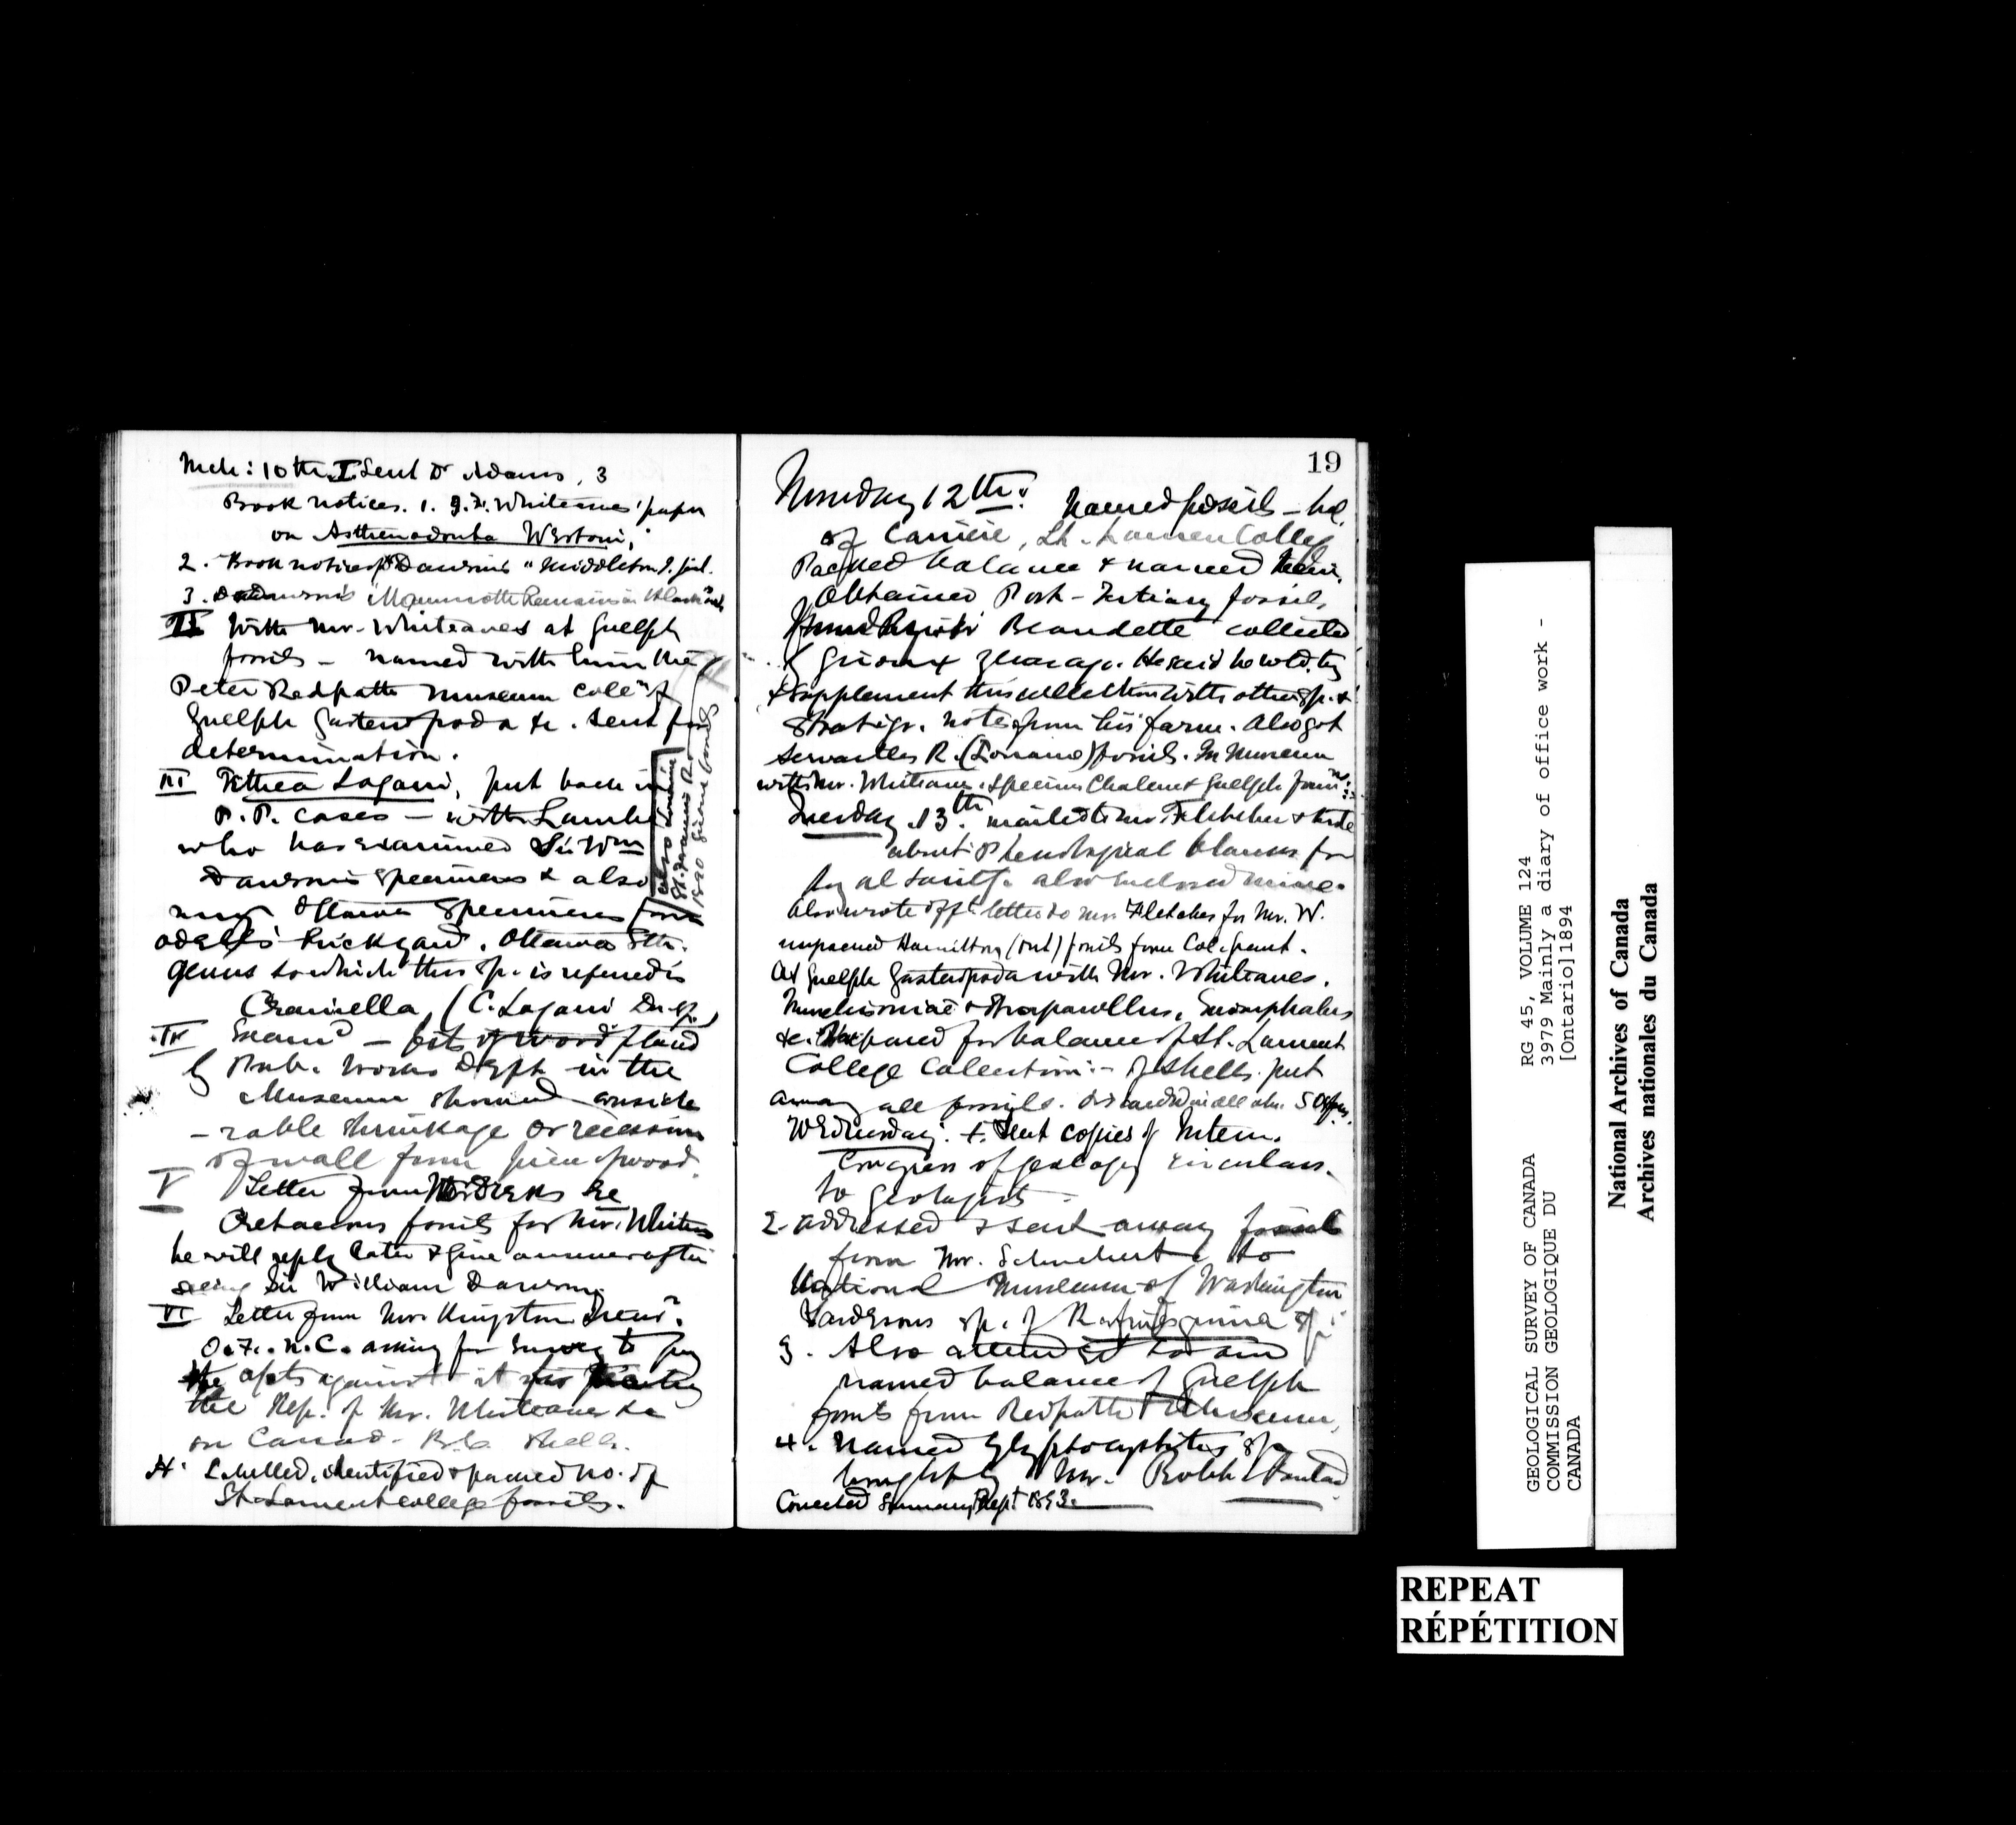 Mch: 10th I Sent Dr Adams, 3
Book notices. 1. J.F. Whiteaves' paper
on Asthenodonta Westoni,
2. Book notice of Dawson's "Middleton
3. Dawson's "Mammoth Remains in
II With Mr. Whiteaves at Guelph
fossils – named with him the
Peter Redpath Museum coln of
Guelph Gasteropoda &c. sent for
determination.
III Tethea Logani, put back in
P.P. cases – with Lambe
who has examined Sir Wm
Dawson's specimens & also
my Ottawa specimens from
Odell's brickyard, Ottawa Sth.
genus to which this sp. is referred is
Craniella, (C. Logani Dn. sp.)
IV Examd – bits of wood placed
by Pub. Works Dept in the
Museum showed conside
-rable shrinkage or recession
of wall from piece of wood.
V Letter from re
Cretaceous fossils for Mr. Whiteaves
he will reply later & give answer after
seeing Sir William Dawson.
VI Letter from Mr. Kingston Treasr.
O.F.-N.C. asking for Survey to pay
the accts against it for
the Rep. of Mr. Whiteaves
on Canad. shells.
Labelled, identified & packed no. of
St. Laurent College fossils.
19
Monday 12th: Named fossils – bal.
of Carrière, St. Laurent College
Packed balance & named them.
Obtained Post-Tertiary fossils
Beaudette collected
years ago. He said he wld. try
& supplement this collection with other sp. &
stratigr. notes from his farm. Also got
R. fossils. In Museum
with Mr. Whiteaves. Specimens Chaleur & Guelph formns.
Tuesday 13th. mailed to Mr. Fletcher & wrote
about Phenological blanks for
also enclosed mine.
Also wrote offl. letter to Mr. Fletcher for Mr. W.
unpacked Hamilton (Ont) fossils from Col. Grant.
At Guelph Gasteropoda with Mr. Whiteaves.
Murchisoniae & Straparollus, Euomphalus
&c. Prepared for balance of St. Laurent
College Collection:– of shells. put
away all fossils.
Wednesday. 1. Sent copies of Intern.
Congress of geology circulars
to geologists –
2. addressed & sent away fossils
from Mr. Schuchert to
National Museum of Washington
sp. of Rafinesquina sp.
3. Also attended to and
named balance of Guelph
fossils from Redpath Museum,
4. Named Glyptocystites sp.
brought by Mr.
Corrected Summary Rept 1893.
GEOLOGICAL SURVEY OF CANADA RG 45, VOLUME 124
COMMISSION GEOLOGIQUE DU 3979 Mainly a diary of office work -
CANADA [Ontario]1894
National Archives of Canada
Archives nationales du Canada
REPEAT
RÉPÉTITION